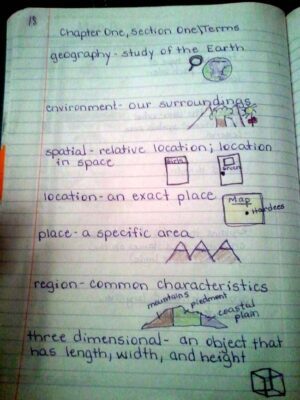 18
Chapter One, Section One\Terms
geography - study of the Earth
environment - our surroundings
spatial - relative location; location
in space
location - an exact place
Map
Hardees
place - a specific area
region - common characteristics
mountains
piedmont
coastal
plain
three dimensional - an object that
has length, width, and height